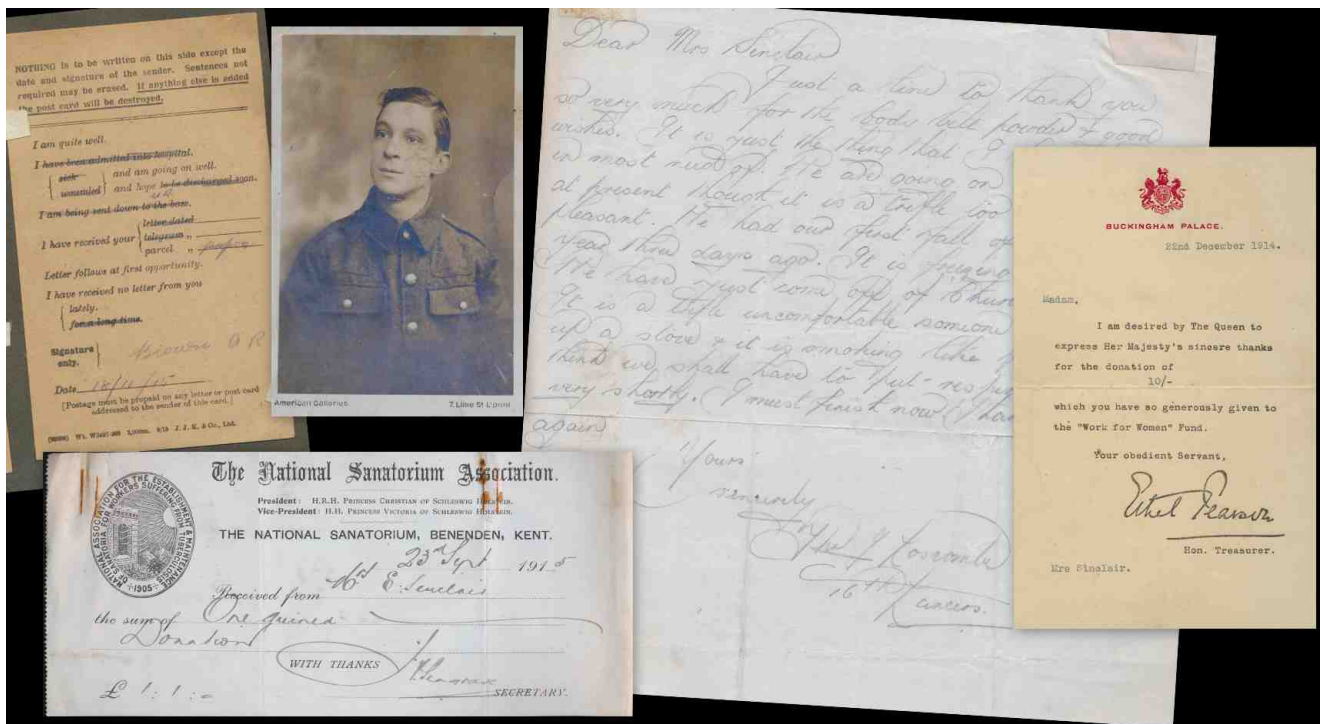 NOTHING is to be written on this side except the
date and signature of the sender. Sentences not
required may be erased. If anything else is added
the post card will be destroyed.
I am quite well.
I have been admitted into hospital.
sick
and am going on well.
wounded
and hope to be discharged soon.
I am being sent down to the base.
letter dated
I have received your
telegram „
parcel „
Letter follows at first opportunity.
I have received no letter from you
lately.
for a long time.
Signature
only.
Brown A R
Date 18/11/15
[Postage must be prepaid on any letter or post card
addressed to the sender of this card.]
American Galleries. 7, Lime St L'pool
Dear Mrs Sinclair
Just a line to thank you
so very much for the body belt powder & good
wishes. It is just the thing that I
in most need of. We are going on
at present though it is a trifle too
pleasant. We had our first fall of
year three days ago. It is freezing
We have just come off of
It is a trifle uncomfortable someone
up a stove & it is smoking like
think we shall have to put
very shortly. I must finish now
again
Yours
sincerely
16TH Lancers.
BUCKINGHAM PALACE.
22nd December 1914.
Madam,
I am desired by The Queen to
express Her Majesty's sincere thanks
for the donation of
10/-
which you have so generously given to
the "Work for Women" Fund.
Your obedient Servant,
Ethel Pearson
Hon. Treasurer.
Mrs Sinclair.
The National Sanatorium Association.
President: H.R.H. PRINCESS CHRISTIAN OF SCHLESWIG HOLSTEIN.
Vice-President: H.H. PRINCESS VICTORIA OF SCHLESWIG HOLSTEIN.
THE NATIONAL SANATORIUM, BENENDEN, KENT.
NATIONAL ASSOCIATION FOR THE ESTABLISHMENT & MAINTENANCE
OF SANATORIA FOR WORKERS SUFFERING FROM TUBERCULOSIS
1905
23rd Sept 1915
Received from Mrs E. Sinclair
the sum of One guinea
Donation
WITH THANKS
SECRETARY.
£ 1 : 1 : =